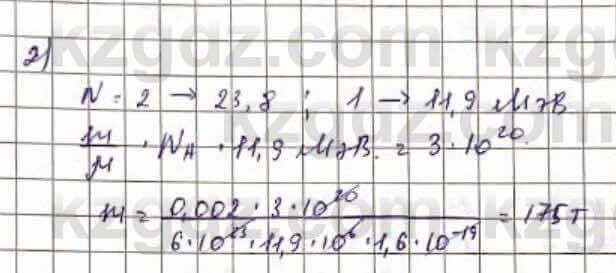 kzgdz.com
2)
N = 2 → 23,8 ; 1 → 11,9 МэВ
m/μ · N_A · 11,9 МэВ. = 3·10^20.
m = (0,002 · 3·10^26) / (6·10^23 · 11,9·10^6 · 1,6·10^-19) = 175т